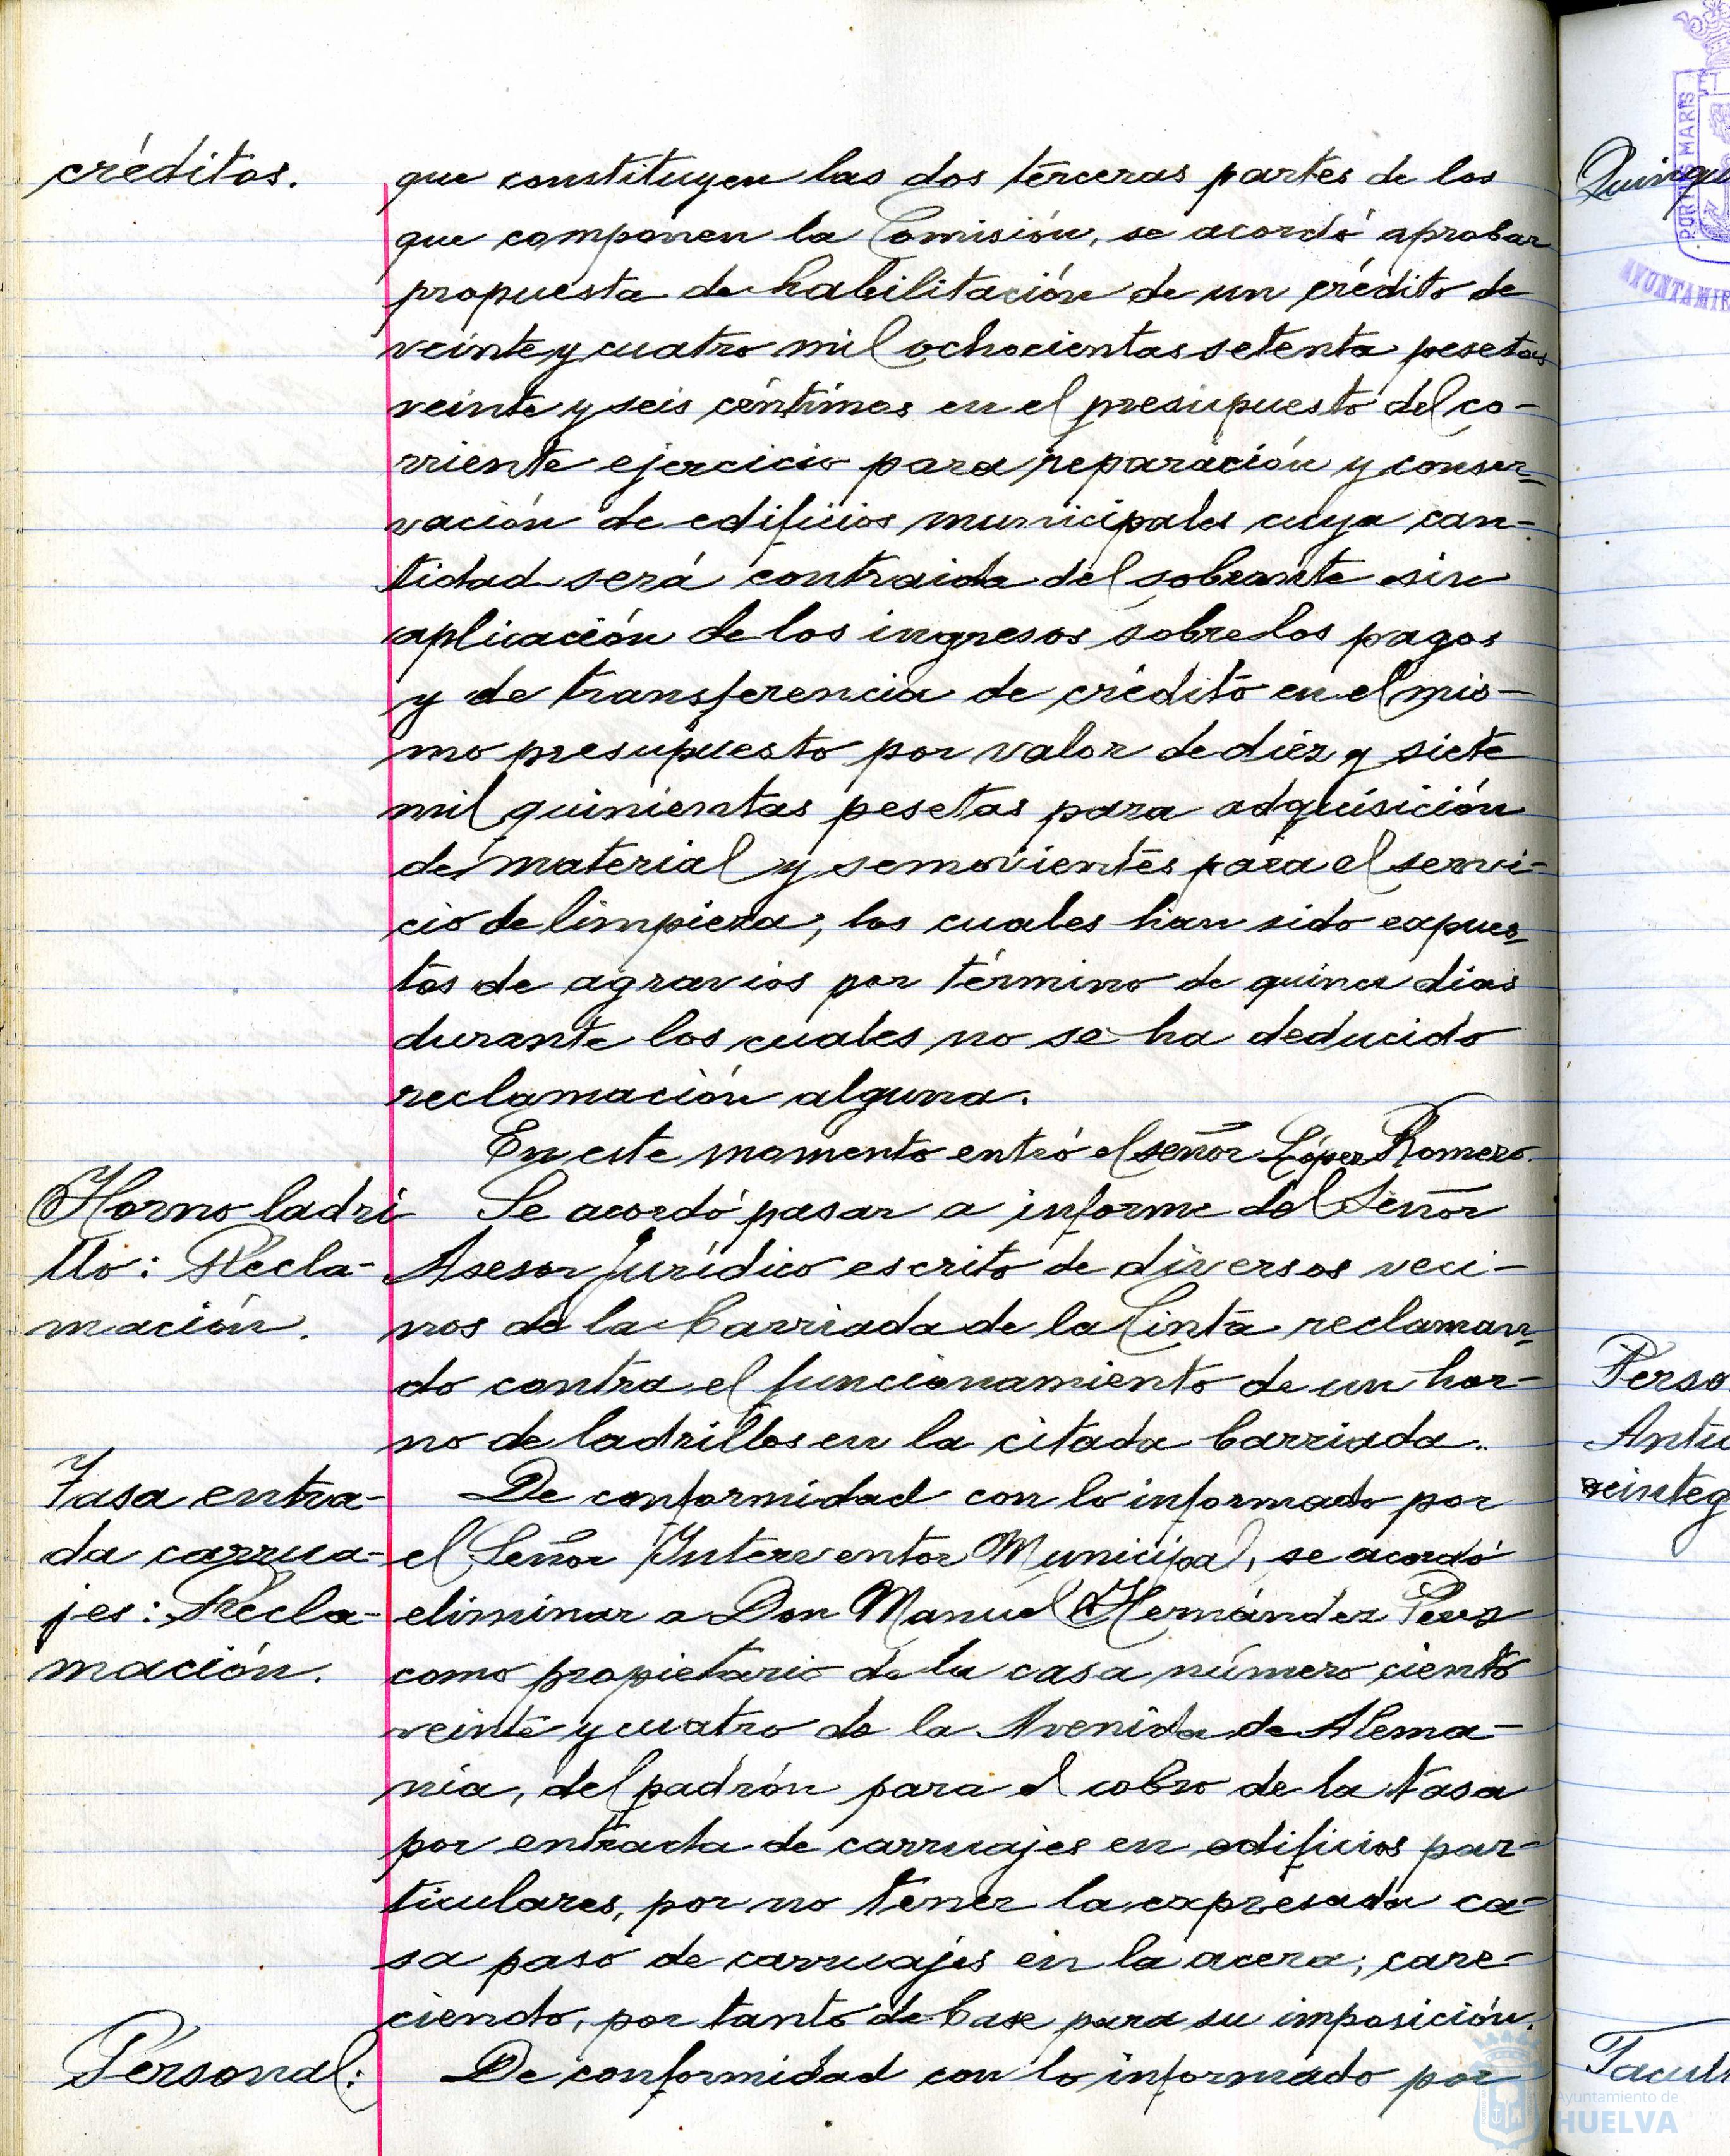 créditos.
que constituyen las dos terceras partes de los
que componen la Comisión, se acordó aprobar
propuesta de habilitación de un crédito de
veinte y cuatro mil ochocientas setenta pesetas
veinte y seis céntimos en el presupuesto del co-
rriente ejercicio para reparación y conser-
vación de edificios municipales cuya can-
tidad será contraida del sobrante sin
aplicación de los ingresos sobre los pagos
y de transferencia de crédito en el mis-
mo presupuesto por valor de diez y siete
mil quinientas pesetas para adquisición
de material y semovientes para el servi-
cio de limpieza, los cuales han sido expues-
tos de agravios por término de quince dias
durante los cuales no se ha deducido
reclamación alguna.
En este momento entró el señor López Romero.
Horno ladri
llo: Recla-
mación.
Se acordó pasar a informe del Señor
Asesor Jurídico escrito de diversos veci-
nos de la barriada de la Cinta reclaman-
do contra el funcionamiento de un hor-
no de ladrillos en la citada barriada.
Tasa entra-
da carrua-
jes: Recla-
mación.
De conformidad con lo informado por
el Señor Interventor Municipal, se acordó
eliminar a Don Manuel Hernández Pérez
como propietario de la casa número ciento
veinte y cuatro de la Avenida de Alema-
nia, del padrón para el cobro de la tasa
por entrada de carruajes en edificios par-
ticulares, por no tener la expresada ca-
sa paso de carruajes en la acera, care-
ciendo, por tanto de base para su imposición.
Personal:
De conformidad con lo informado por
Quinqu
Perso
Antic
reinteg
Facult
PORTUS MARIS ET
AYUNTAMIE
Ayuntamiento de
HUELVA